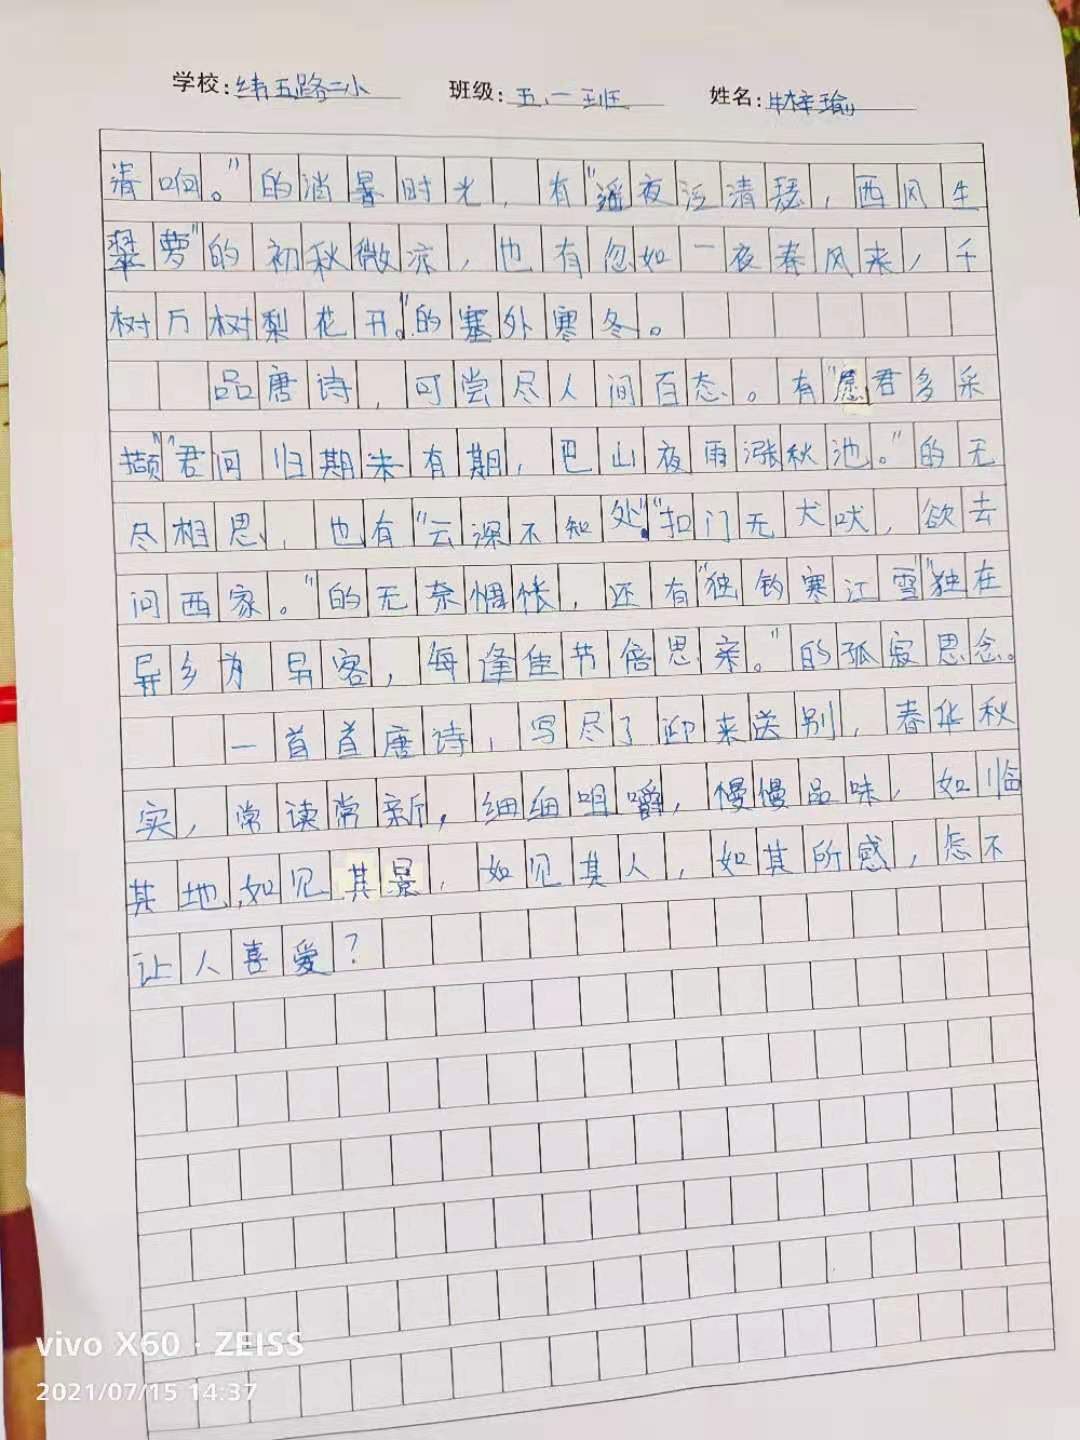 学校:纬五路二小 班级:五、一班 姓名:牛梓瑜
清响。”的消暑时光，有“遥夜泛清瑟，西风生
翠萝”的初秋微凉，也有忽如一夜春风来，千
树万树梨花开。”的塞外寒冬。
品唐诗，可尝尽人间百态。有“愿君多采
撷”“君问归期未有期，巴山夜雨涨秋池。”的无
尽相思，也有“云深不知处”“扣门无犬吠，欲去
问西家。”的无奈惆怅，还有“独钓寒江雪”独在
异乡为异客，每逢佳节倍思亲。”的孤寂思念。
一首首唐诗，写尽了迎来送别，春华秋
实，常读常新，细细咀嚼，慢慢品味，如临
其地，如见其景，如见其人，如其所感，怎不
让人喜爱？
vivo X60 · ZEISS
2021/07/15 14:37